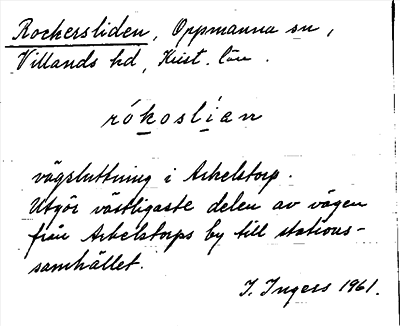 Rockersliden, Oppmanna sn,
Villands hd, Krist. län.
rókoslian
vägsluttning i Arkelstorp.
Utgör västligaste delen av vägen
från Arkelstorps by till stations-
samhället.
I. Ingers 1961.